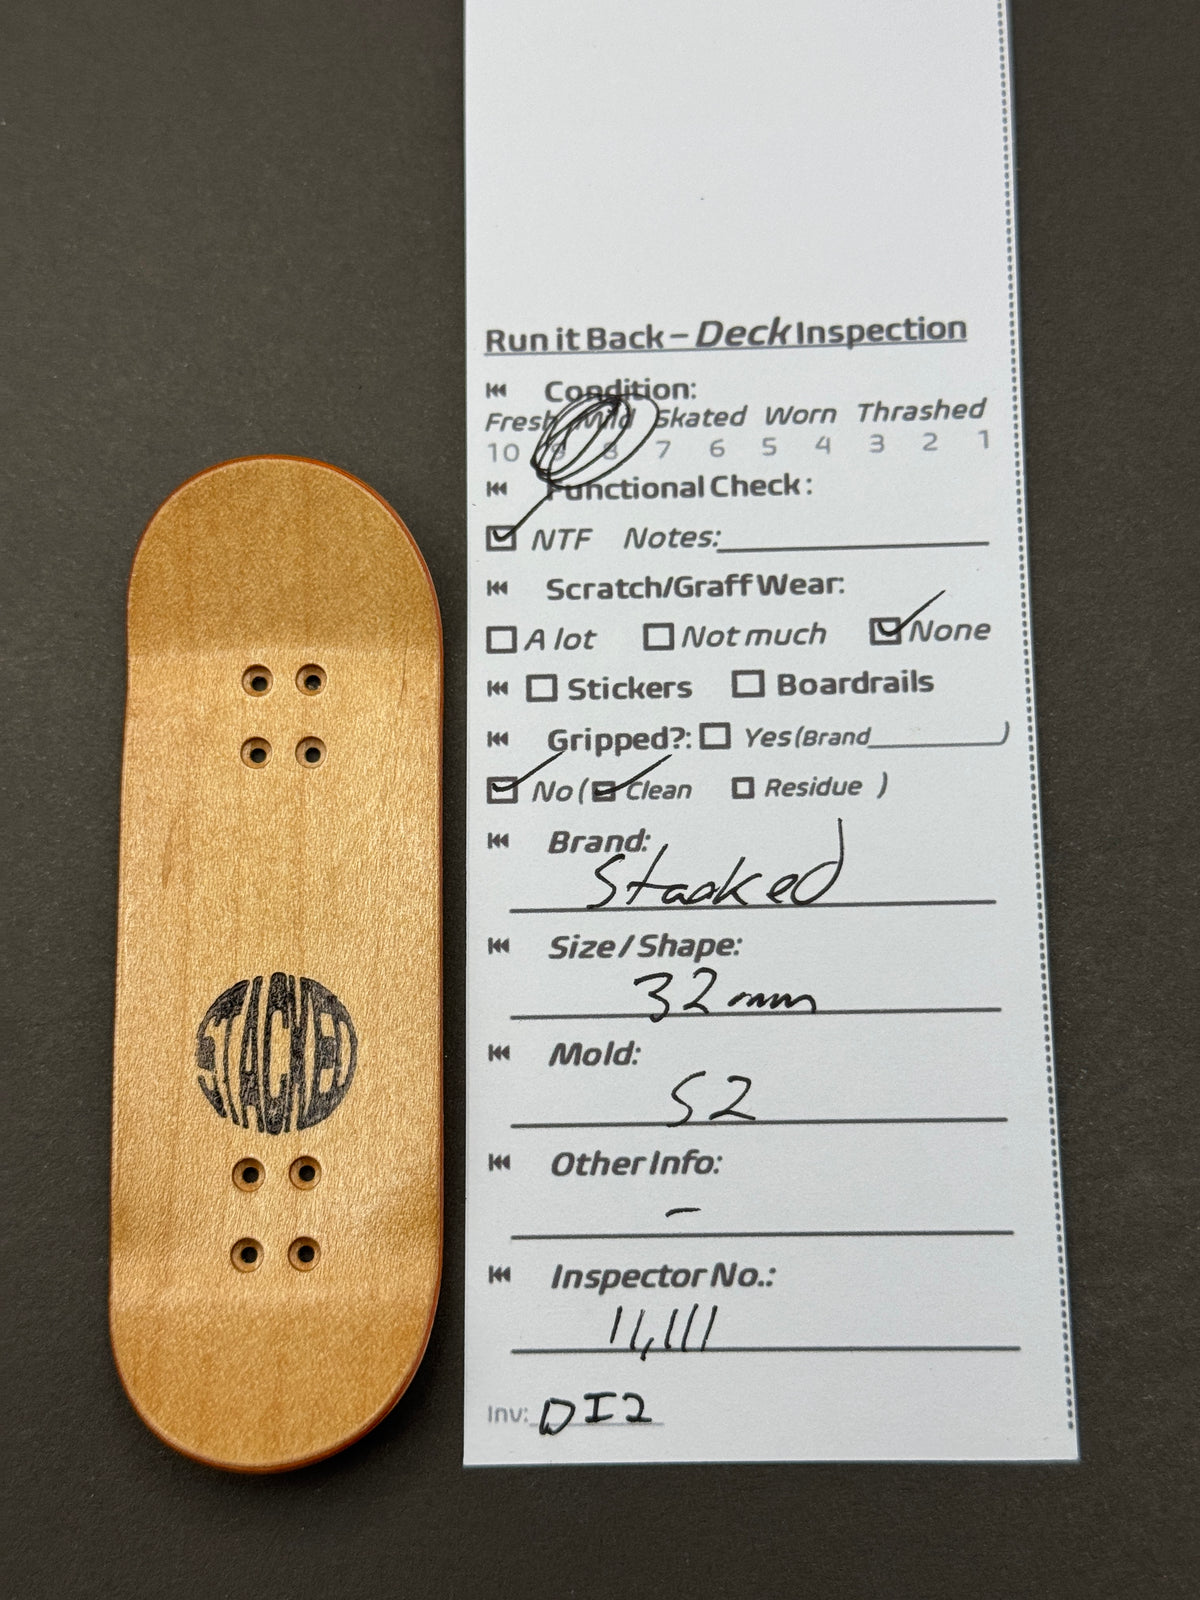 Run it Back – Deck Inspection
Condition:
Fresh Mild Skated Worn Thrashed
10 9 8 7 6 5 4 3 2 1
Functional Check:
NTF Notes:
Scratch/Graff Wear:
A lot Not much None
Stickers Boardrails
Gripped?: Yes (Brand )
No ( Clean Residue )
Brand:
Stacked
Size / Shape:
32mm
Mold:
S2
Other Info:
–
Inspector No.:
11,111
Inv: DI2
STACKED